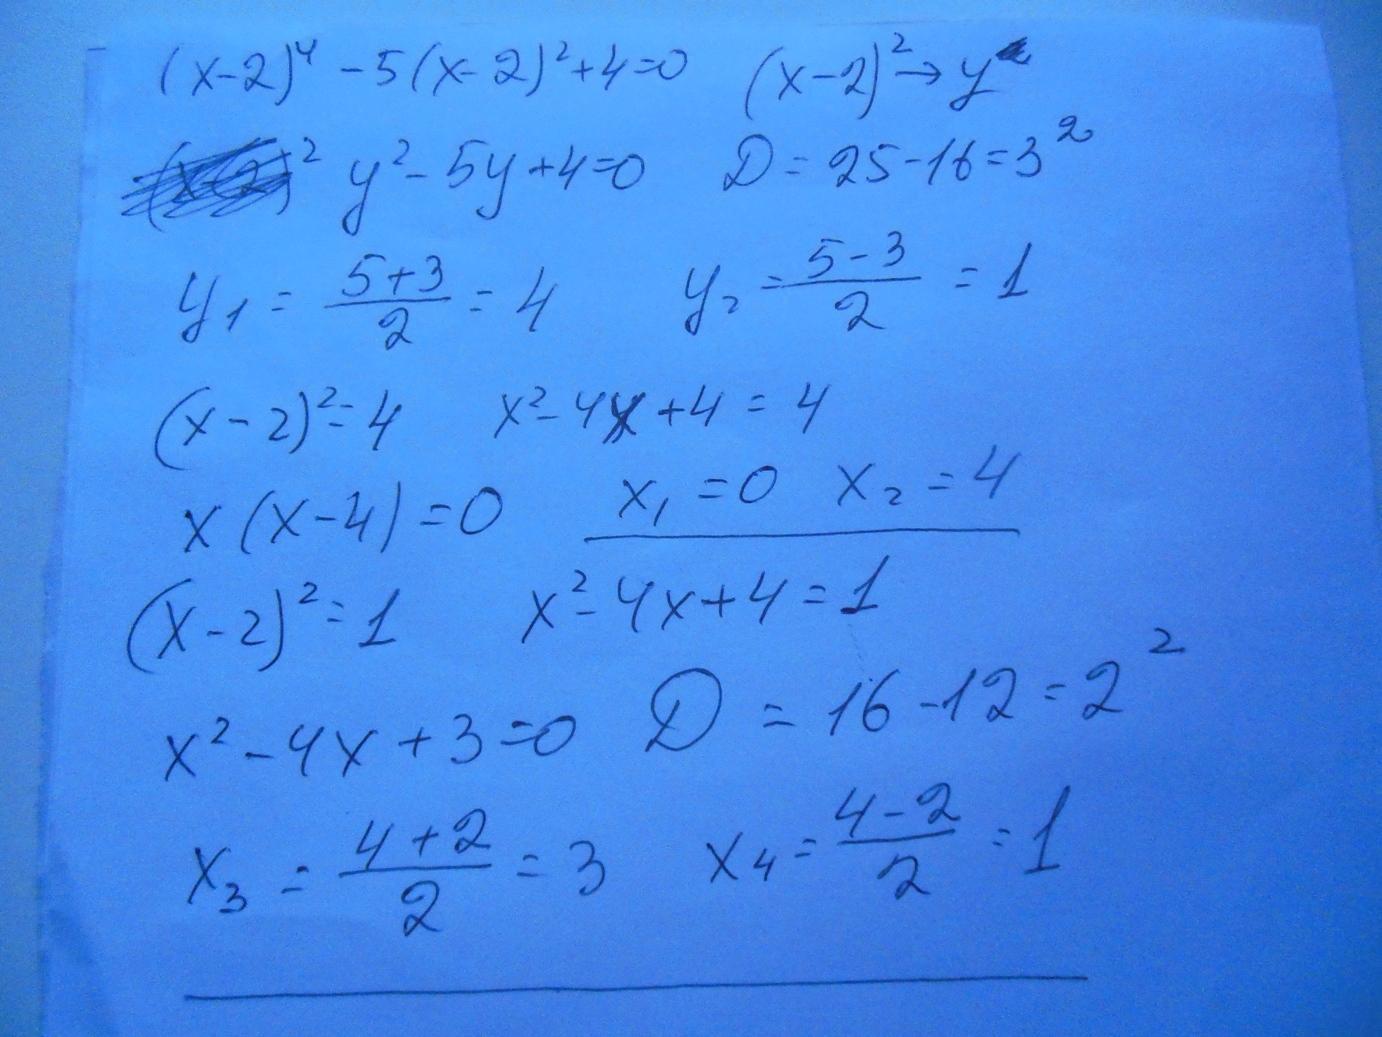 (x-2)⁴ -5(x-2)²+4=0 (x-2)²→y
² y²-5y+4=0 D=25-16=3²
y₁ = (5+3)/2 = 4 y₂ = (5-3)/2 = 1
(x-2)²=4 x²-4x+4=4
x(x-4)=0 x₁=0 x₂=4
(x-2)²=1 x²-4x+4=1
x²-4x+3=0 D = 16-12=2²
x₃ = (4+2)/2 = 3 x₄ = (4-2)/2 = 1